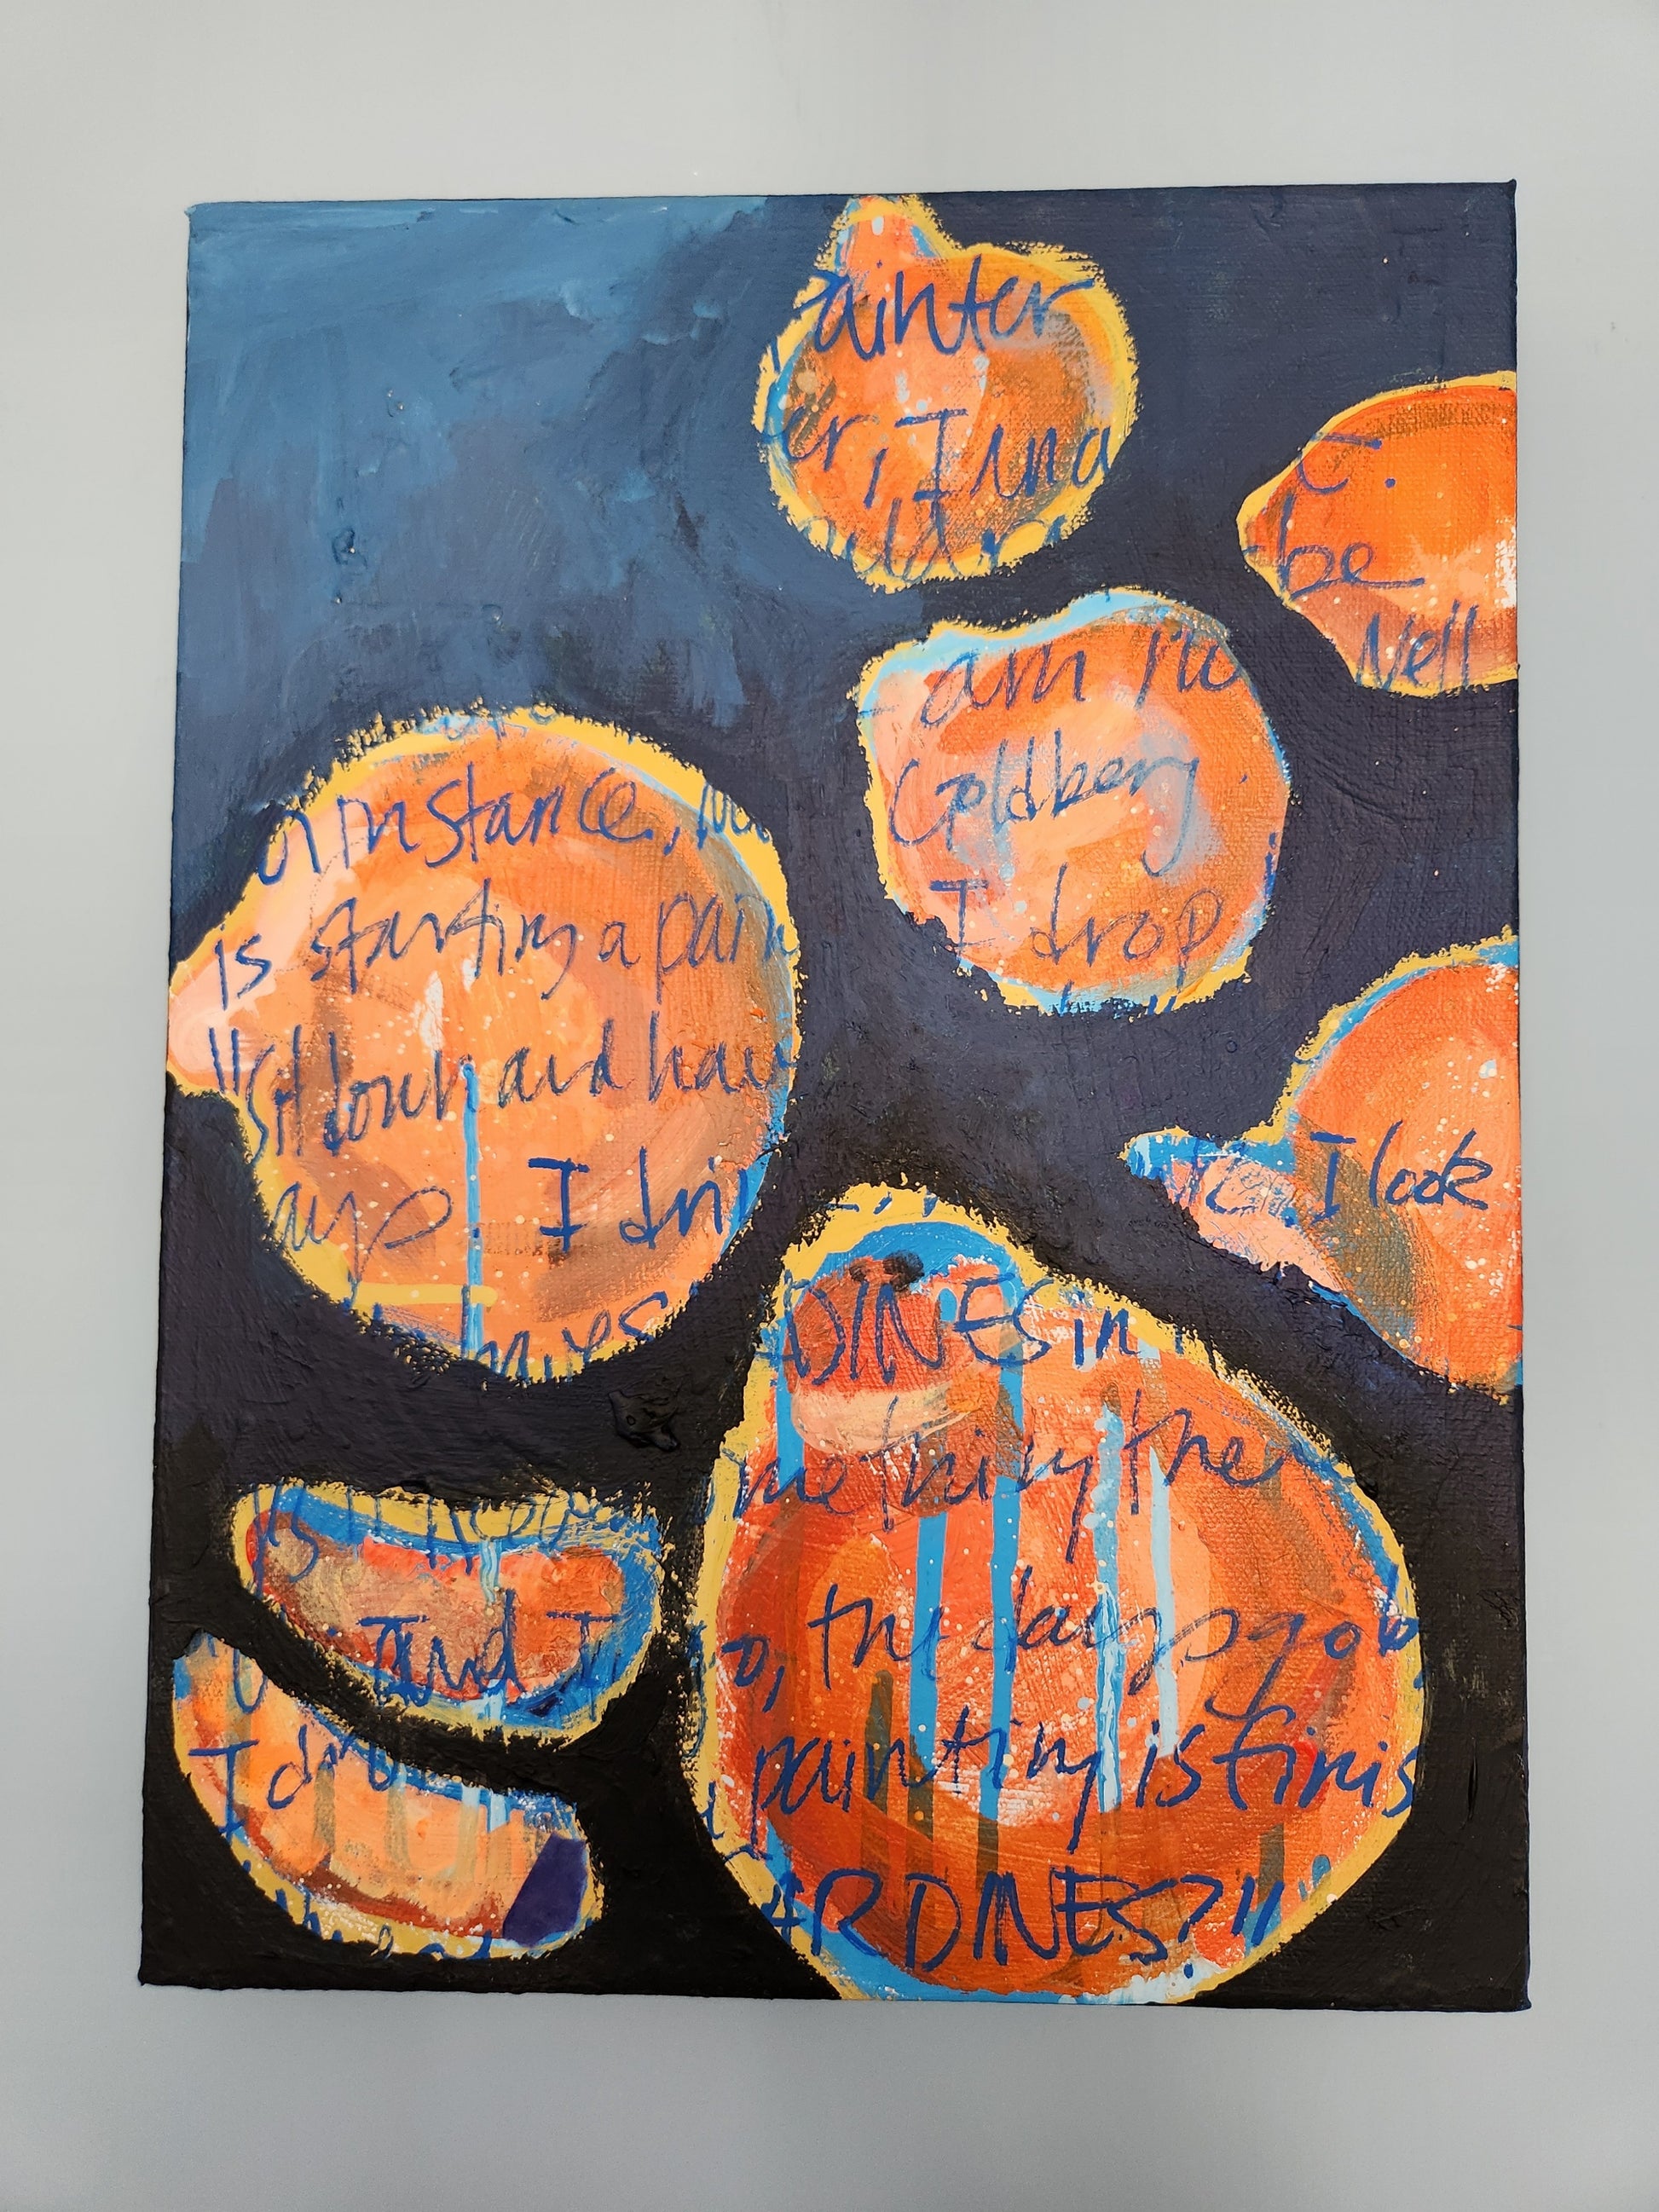 ainter
er, I
t.
be
Well
am no
Goldberg
I drop
or instance,
is starting a pain
Sit down and hav
ays I dri
I look
DINES in
me thing the
the days go b
painting is finis
ARDINES?"
And I
I dr